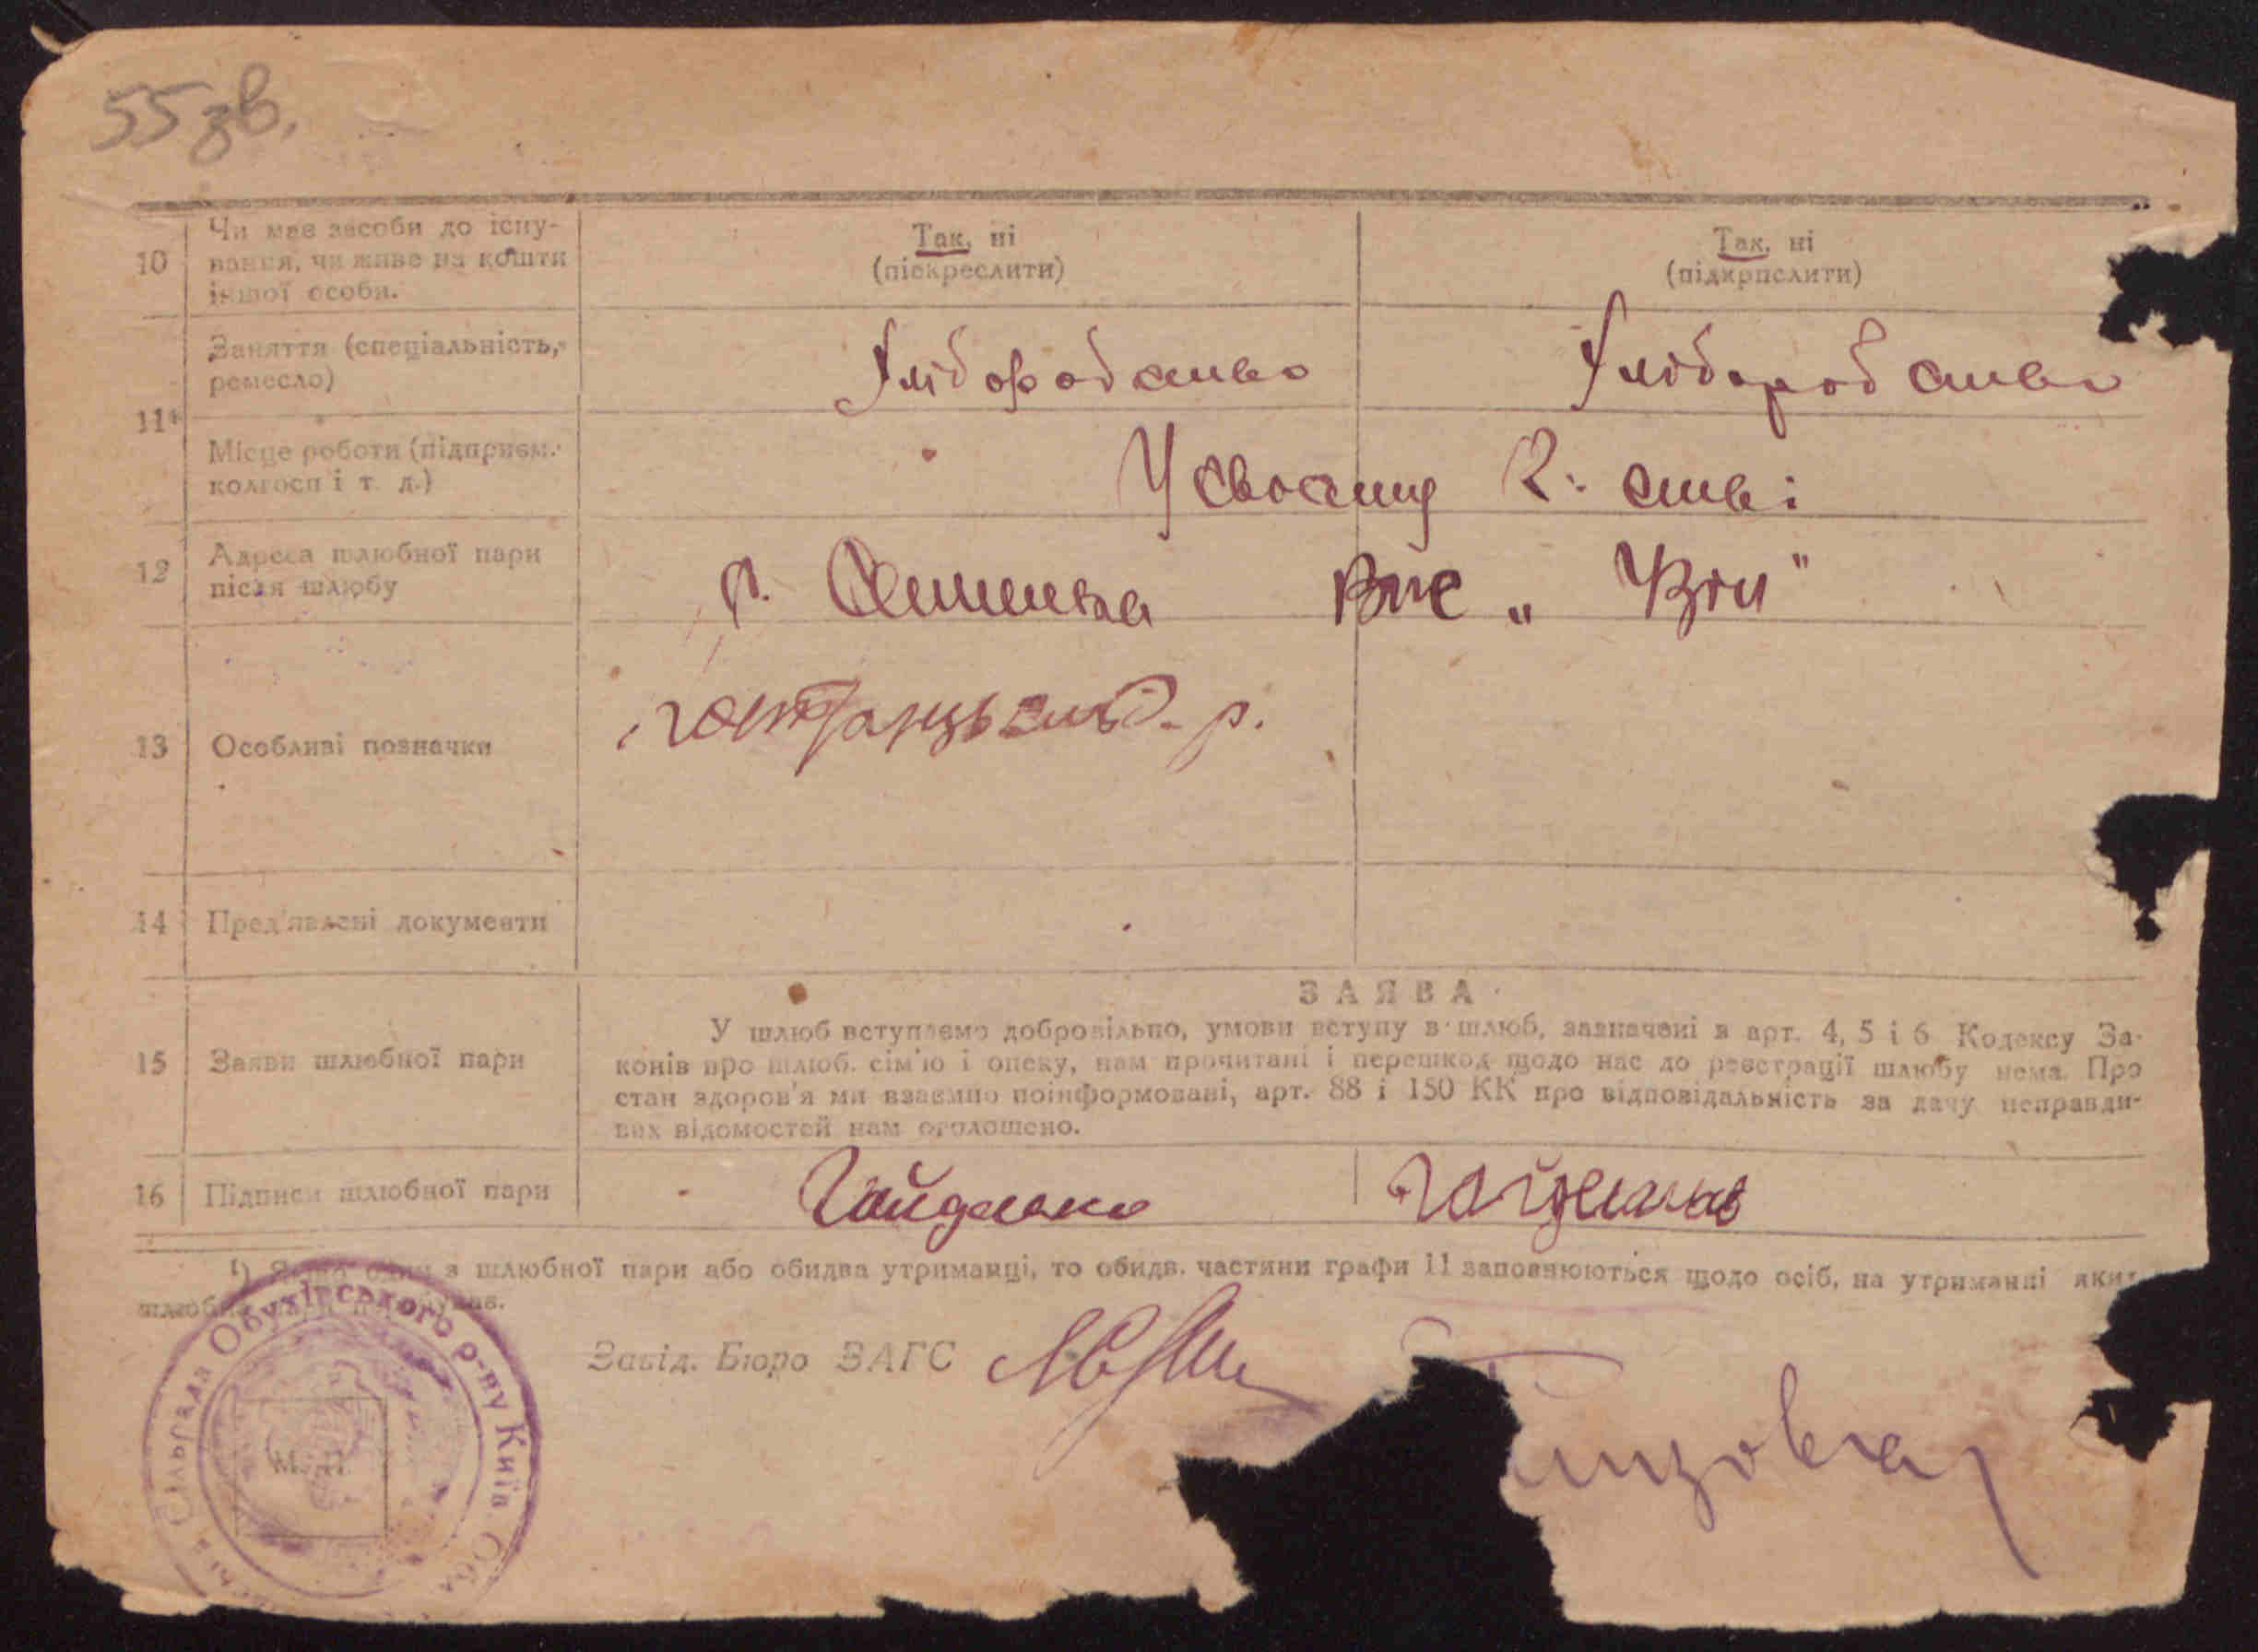 55 зв.
10 Чи має засоби до існу-
вання, чи живе на кошти
іншої особи.
Так, ні
(піскреслити)
Так, ні
(підкрпслити)
11¹
Заняття (спеціальність,
ремесло)
Хліборобство
Хліборобство
Місце роботи (підприєм.
колгосп і т. д.)
У своєму г. стві
12 Адреса шлюбної пари
після шлюбу
13 Особливі позначки
14 Пред'явлені документи
ЗАЯВА
15 Заяви шлюбної пари
У шлюб вступаємо добровільно, умови вступу в шлюб, зазначені в арт. 4, 5 і 6 Кодексу За-
конів про шлюб. сім'ю і опеку, нам прочитані і перешкод щодо нас до реєстрації шлюбу нема. Про
стан здоров'я ми взаємно поінформовані, арт. 88 і 150 КК про відповідальність за дачу неправди-
вих відомостей нам оголошено.
16 Підписи шлюбної пари
¹) з шлюбної пари або обидва утриманці, то обидв. частини графи 11 заповнюються щодо осіб, на утриманні яких
Завід. Бюро ЗАГС
М. П.
Сільрада Обухівського р-ну Київ. Обл